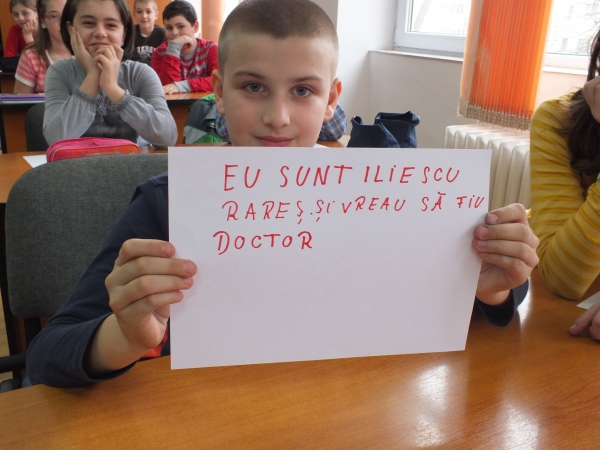 EU SUNT ILIESCU
RAREȘ.ȘI VREAU SĂ FIU
DOCTOR